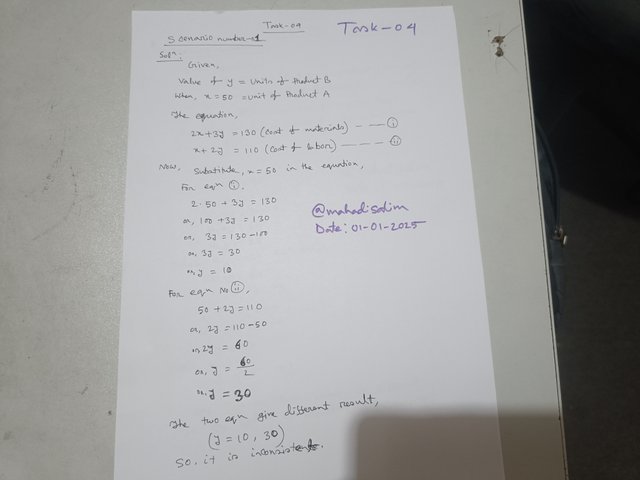 Task-04
Task-04
Scenario number-1
Soln:
Given,
Value of y = Units of Product B
When, x = 50 = unit of Product A
The equation,
2x+3y = 130 (Cost of materials) --- (i)
x + 2y = 110 (Cost of labor) ---- (ii)
Now, Substitute, x = 50 in the equation,
For eqn (i),
2·50 + 3y = 130
or, 100 + 3y = 130
or, 3y = 130-100
or, 3y = 30
or, y = 10
@mahadisalim
Date: 01-01-2025
For eqn No (ii),
50 + 2y = 110
or, 2y = 110-50
or, 2y = 60
or, y = 60/2
or, y = 30
The two eqn give different result,
(y = 10, 30)
So, it is inconsistent.